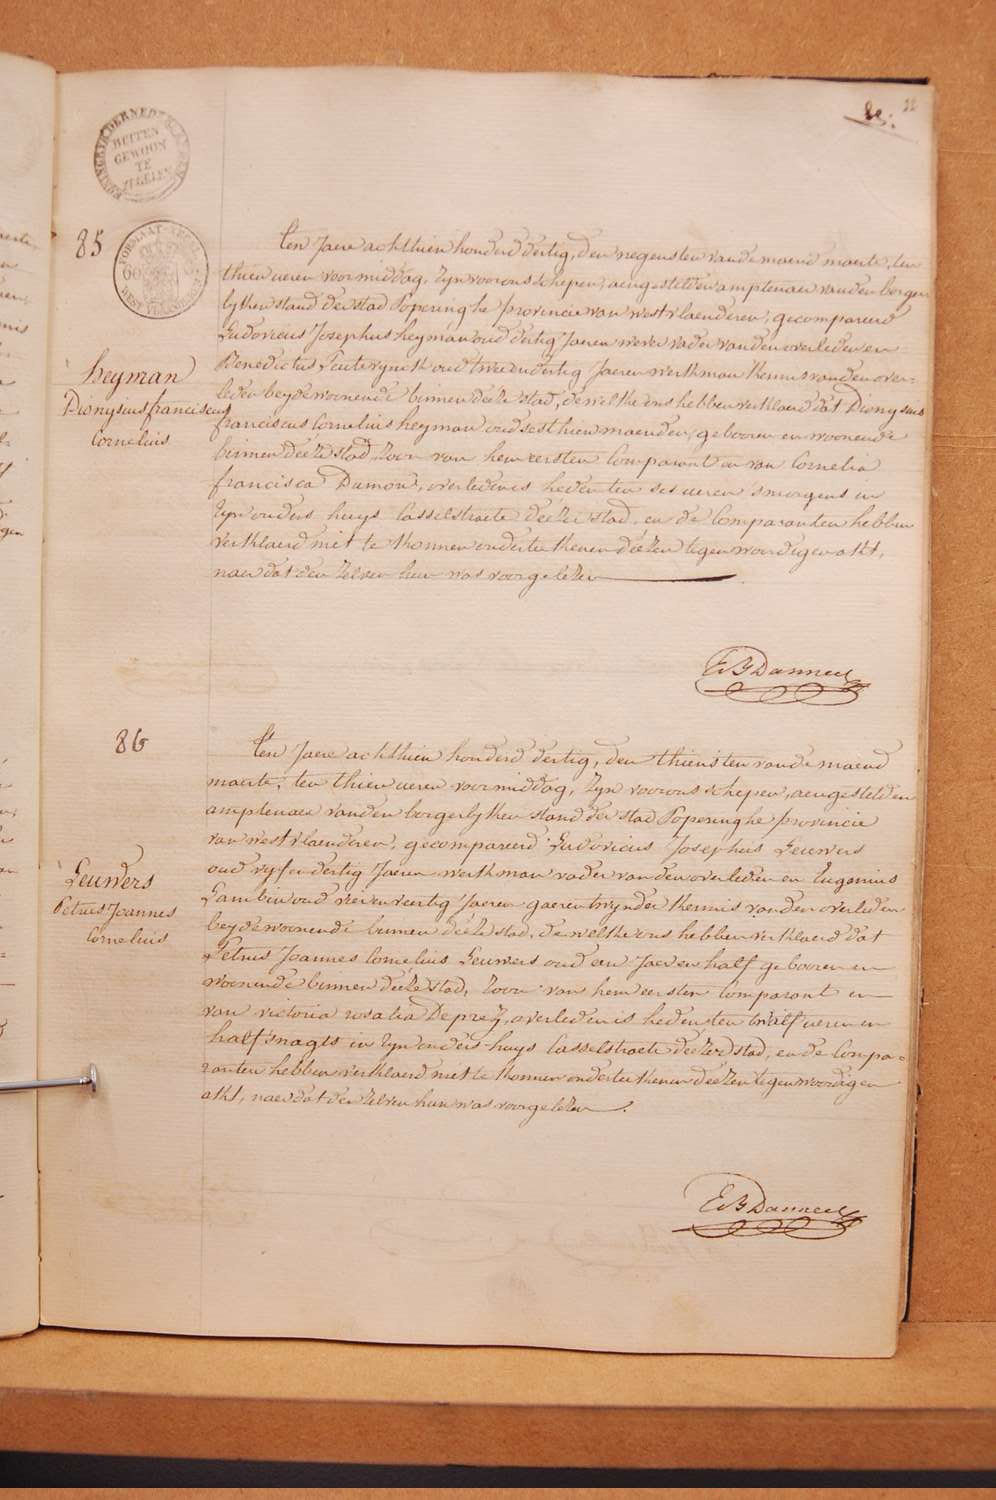 22
KONINGRYK DER NEDERLANDEN
BUITEN
GEWOON
TE
ZEGELEN
85
FORMAAT
WEST VLAENDEREN
heyman
Dionysius franciscus
Cornelius
Ten Jaere achthien honderd dertig, den negensten vande maend maerte, ten
thien ueren voormiddag, Zyn voor ons schepen, aengestelden amptenaer van den borger-
lyken stand der stad Poperinghe provincie van westvlaenderen, gecompareerd
Ludovicus Josephus heyman oud dertig Jaeren wever vader van den overleden en
Benedictus oud twee en dertig Jaeren werkman kennis van den over-
leden beyde woonende binnen deeze stad, de welke ons hebben verklaerd dat Dionysius
franciscus Cornelius heyman oud sesthien maenden, gebooren en woonende
binnen deeze stad, Zoon van hem eersten Comparant en van Cornelia
francisca Dumon, overleden is heden ten ses ueren 's morgens in
Zyn ouders huys Casselstraete deezer stad, en de Comparanten hebben
verklaerd niet te konnen onderteekenen deezen tegenwoordigen akt,
naer dat den zelven hun was voorgelezen
86
Leuwers
Petrus Joannes
Cornelius
Ten Jaere achthien honderd dertig, den thiensten vande maend
maerte, ten thien ueren voormiddag, Zyn voor ons schepen, aengestelden
amptenaer van den borgerlyken stand der stad Poperinghe provincie
van westvlaenderen, gecompareerd Ludovicus Josephus Leuwers
oud vyf en dertig Jaeren werkman vader van den overleden en Eugenius
Lambin oud vier en veertig Jaeren gaerentwynder kennis van den overleden
beyde woonende binnen deeze stad, de welke ons hebben verklaerd dat
Petrus Joannes Cornelius Leuwers oud een Jaer en half gebooren en
woonende binnen deeze stad, Zoon van hem eersten Comparant en
van victoria rosalia Deprez, overleden is heden ten twalf ueren en
half 's nagts in Zyn ouders huys Casselstraete deezer stad, en de Compa=
ranten hebben verklaerd niet te konnen onderteekenen deezen tegenwoordigen
akt, naer dat den zelven hun was voorgelezen.